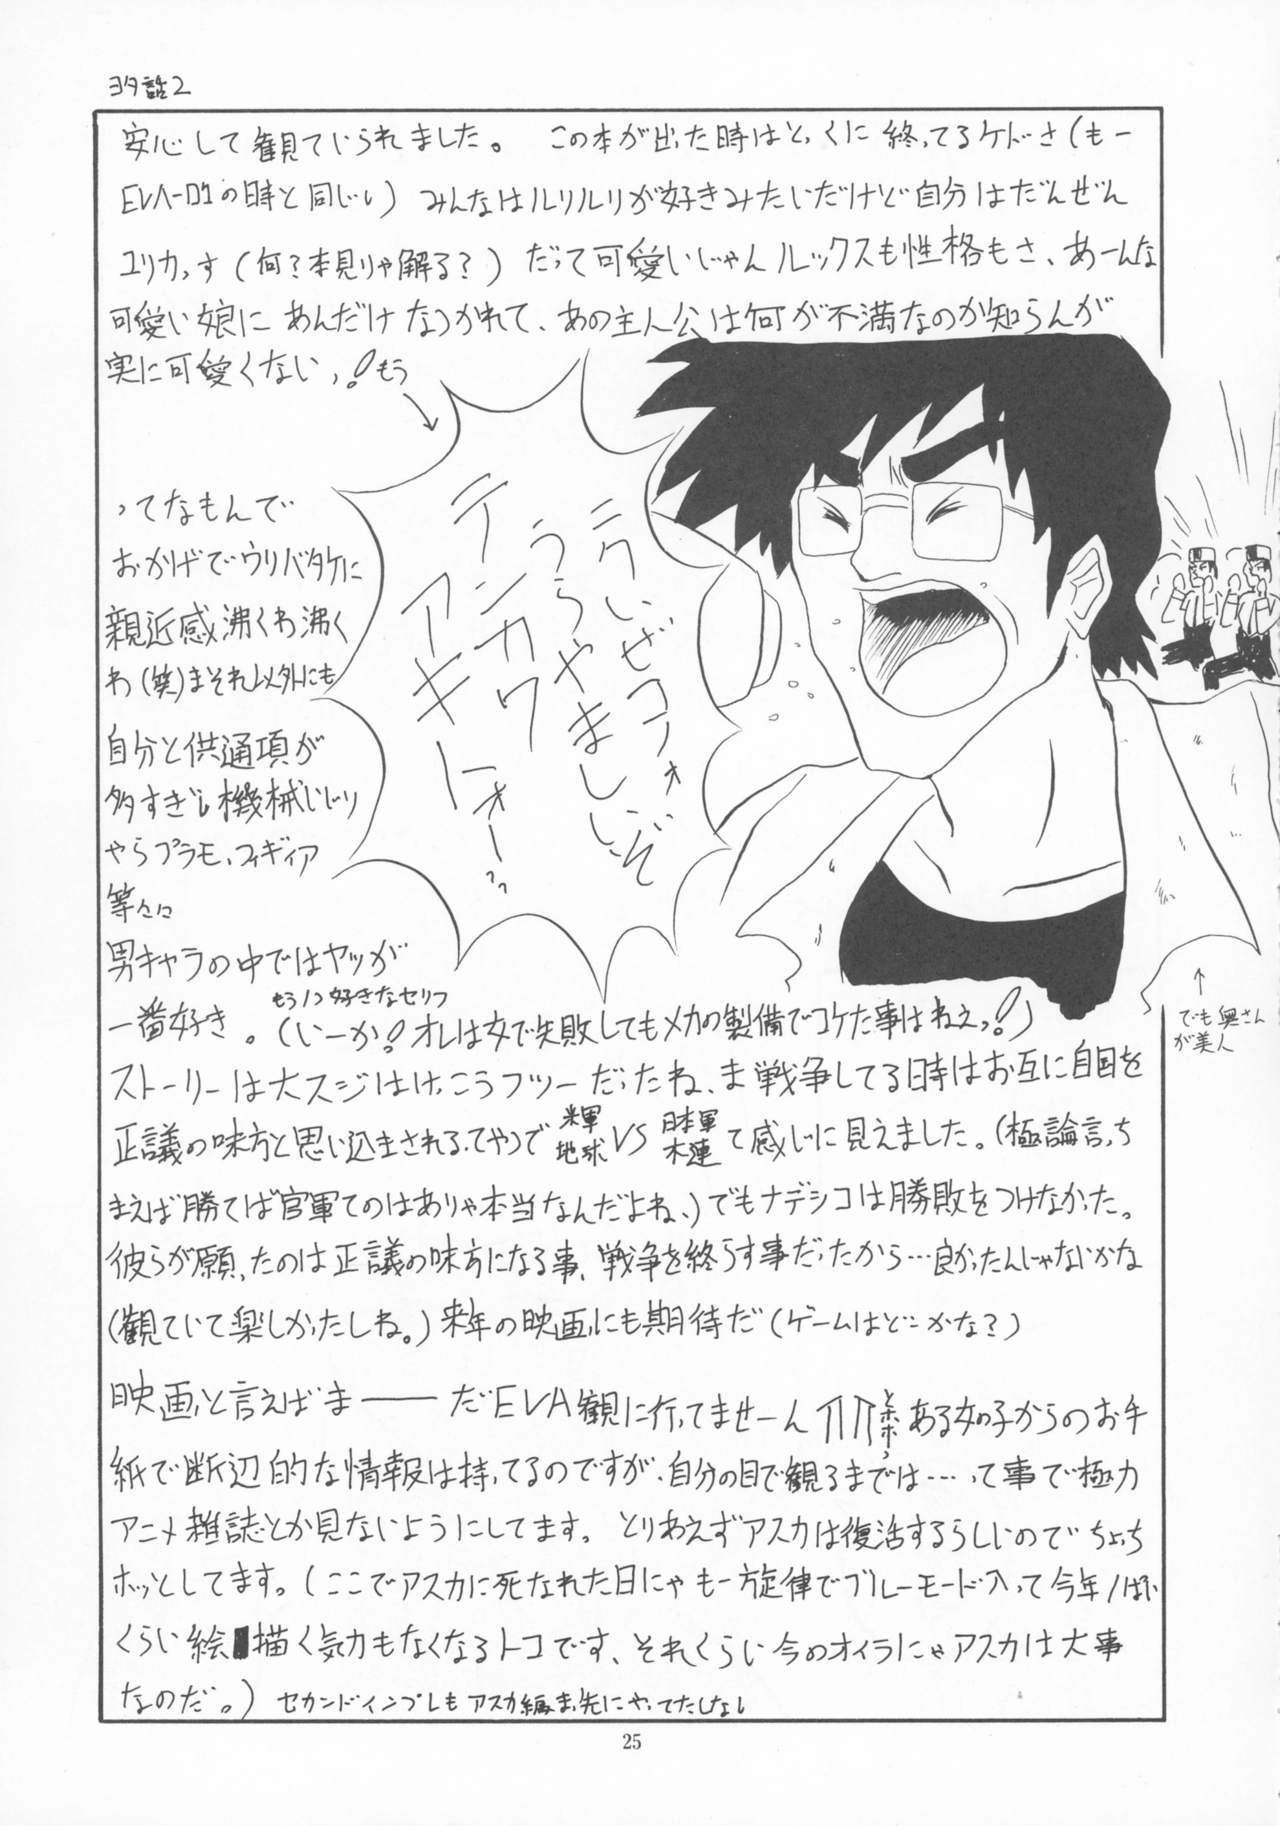 ヨタ話2
安心して観ていられました。 この本が出た時はとっくに終ってるケドさ(もー
EVA-01の時と同じい) みんなはルリルリが好きみたいだけど自分はだんぜん
ユリカっす(何?本見りゃ解る?) だって可愛いじゃんルックスも性格もさ、あーんな
可愛い娘にあんだけなつかれて、あの主人公は何が不満なのか知らんが
実に可愛くないっ!もう
ニクいぜコノォ
うらやましいぞ
テンカワ
アキトォーっ
ってなもんで
おかげでウリバタケに
親近感沸くわ沸く
わ(笑)まそれ以外にも
自分と供通項が
多すぎし機械いじり
やらプラモ、フィギィア
等々に
男キャラの中ではヤツが
一番好き。(いーか!オレは女で失敗してもメカの製備でコケた事はねえっ!)
もう1つ好きなセリフ
でも奥さん
が美人
ストーリーは大スジはけっこうフツーだったね、ま戦争してる時はお互に自国を
正議の味方と思い込まされるってやつで米軍地球VS日本軍木連て感じに見えました。(極論言っち
まえば勝てば官軍てのはありゃ本当なんだよね、)でもナデシコは勝敗をつけなかった。
彼らが願ったのは正議の味方になる事、戦争を終らす事だったから…良かったんじゃないかな
(観ていて楽しかったしね。)来年の映画にも期待だ(ゲームはどこかな?)
映画と言えばま――だEVA観に行ってませーん とホホっ ある女の子からのお手
紙で断辺的な情報は持ってるのですが、自分の目で観るまでは…って事で極力
アニメ雑誌とか見ないようにしてます。とりあえずアスカは復活するらしいのでちょっち
ホッとしてます。(ここでアスカに死なれた日にゃもー方旋律でブルーモード入って今年1ぱい
くらい絵描く気力もなくなるトコです、それくらい今のオイラにゃアスカは大事
なのだ。) セカンドインプレもアスカ編まっ先にやってたしなし
25